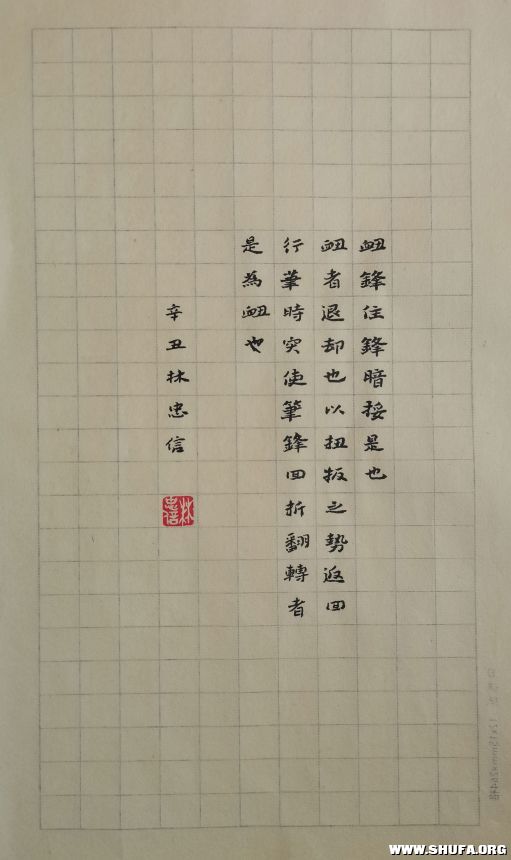 衄鋒住鋒暗挼是也
衄者退却也以扭扳之勢返回
行筆時突使筆鋒回折翻轉者
是為衄也
辛丑林忠信
林忠信
WWW.SHUFA.ORG